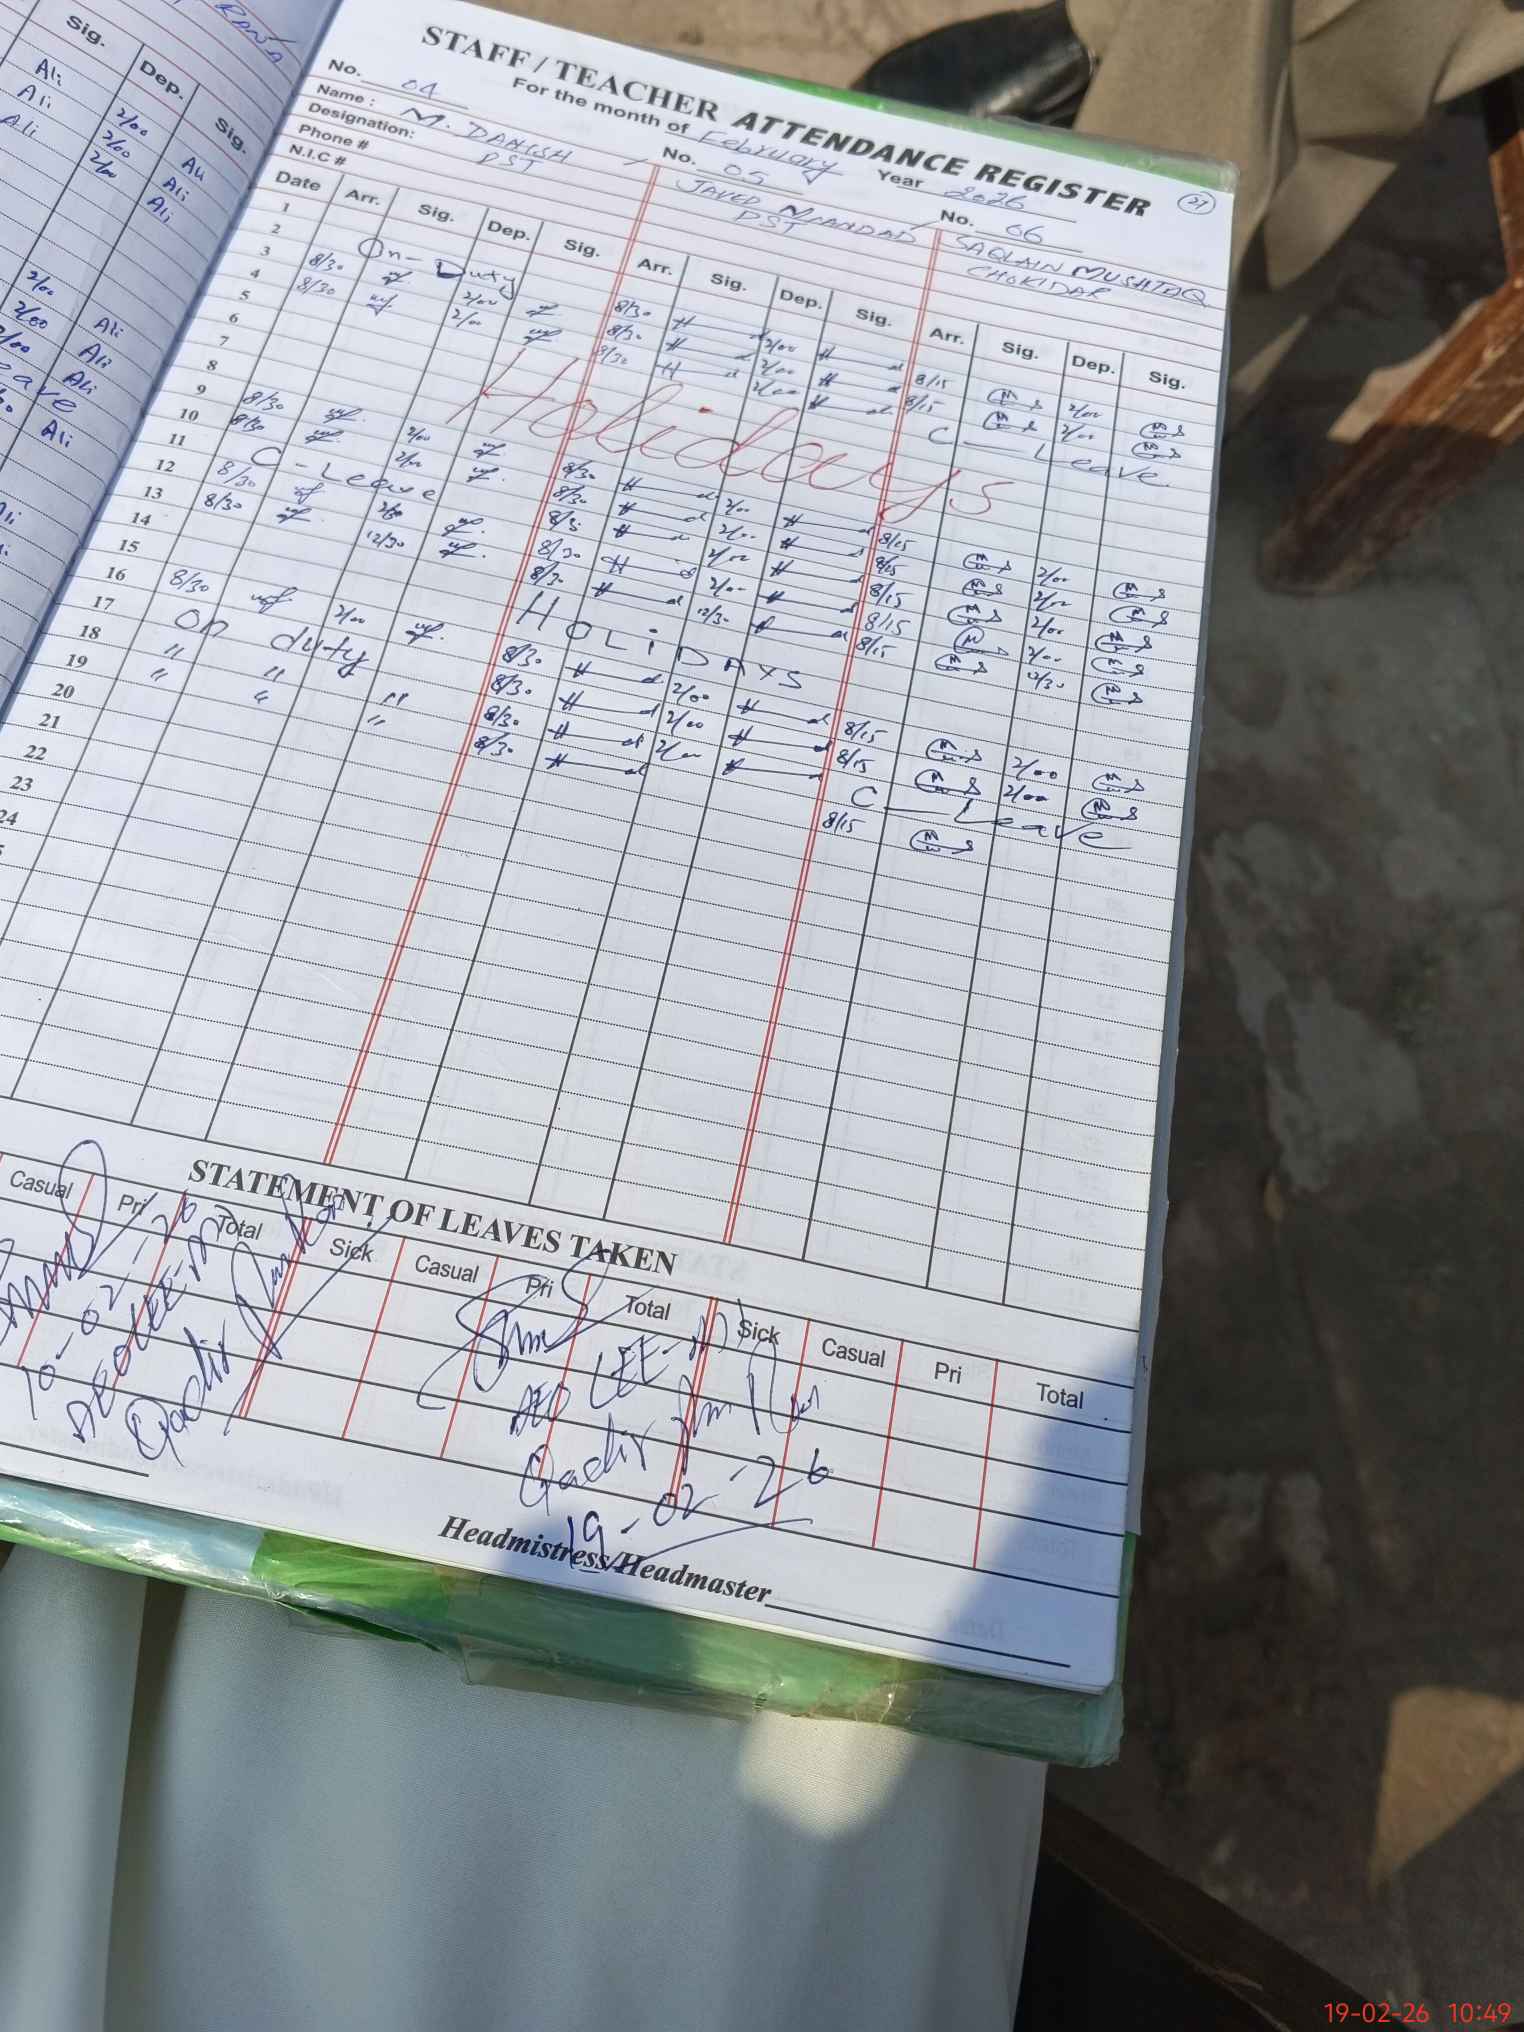 STAFF / TEACHER ATTENDANCE REGISTER
For the month of February Year 2026
27
No. 04 No. 05 No. 06
Name : M. DANISH JAVED MIANDAD SAQLAIN MUSHTAQ
Designation: PST PST CHOKIDAR
Phone #
N.I.C #
Date Arr. Sig. Dep. Sig. Arr. Sig. Dep. Sig. Arr. Sig. Dep. Sig.
1
2 On-Duty 8/30 2/00 8/15 2/00
3 8/30 2/00 8/30 2/00 8/15 2/00
4 8/30 2/00 8/30 2/00 C Leave
5
6 Holidays
7
8
9 8/30 2/00 8/30 2/00 8/15 2/00
10 8/30 2/00 8/30 2/00 8/15 2/00
11 C-Leave 8/30 2/00 8/15 2/00
12 8/30 2/00 8/30 2/00 8/15 2/00
13 8/30 12/30 8/30 12/30 8/15 12/30
14
15 HOLiDAYS
16 8/30 2/00 8/30 2/00 8/15 2/00
17 On duty 8/30 2/00 8/15 2/00
18 " " " 8/30 2/00 C Leave
19 " " " 8/30 8/15
20
21
22
23
24
STATEMENT OF LEAVES TAKEN
Casual Pri Total Sick Casual Pri Total Sick Casual Pri Total
10-02-26
AEO LEE-M
Qadir
AEO LEE-M
Qadir
19-02-26
Headmistress/Headmaster
Sig. Dep. Sig.
Ali 2/00 Ali
Ali 2/00 Ali
Ali 2/00 Ali
2/00 Ali
2/00 Ali
2/00 Ali
eave
Ali
19-02-26 10:49